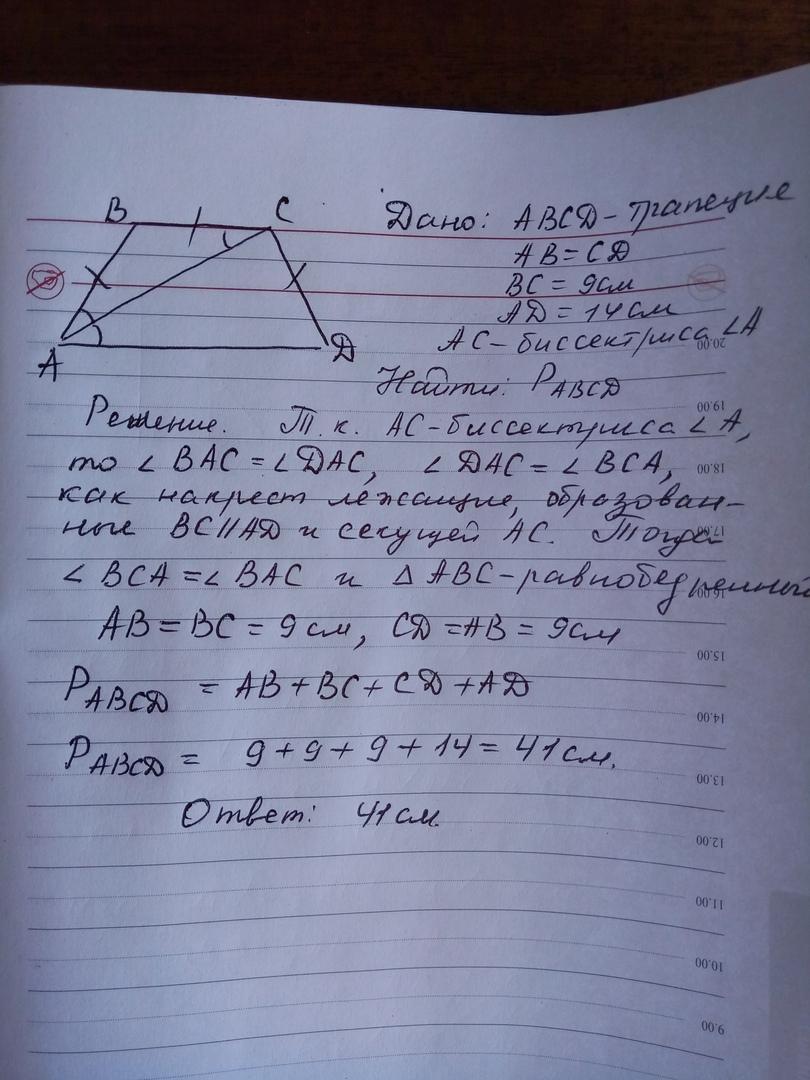 B
C
A
D
Дано: ABCD - трапеция
AB = CD
BC = 9 см
AD = 14 см
AC - биссектриса ∠A
Найти: P ABCD
Решение. Т.к. AC - биссектриса ∠A,
то ∠ BAC = ∠DAC, ∠ DAC = ∠ BCA,
как накрест лежащие, образован-
ные BC || AD и секущей AC. Тогда
∠ BCA = ∠ BAC и Δ ABC - равнобедренный
AB = BC = 9 см, CD = AB = 9 см
P ABCD = AB + BC + CD + AD
P ABCD = 9 + 9 + 9 + 14 = 41 см.
Ответ: 41 см.
20.00
19.00
18.00
17.00
16.00
15.00
14.00
13.00
12.00
11.00
10.00
9.00